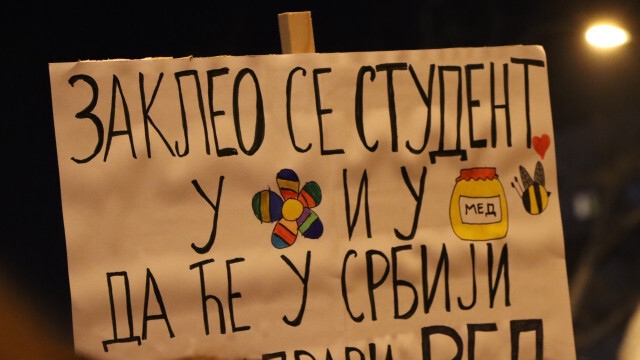 ЗАКЛЕО СЕ СТУДЕНТ
У И У
МЕД
ДА ЋЕ У СРБИЈИ
РЕД